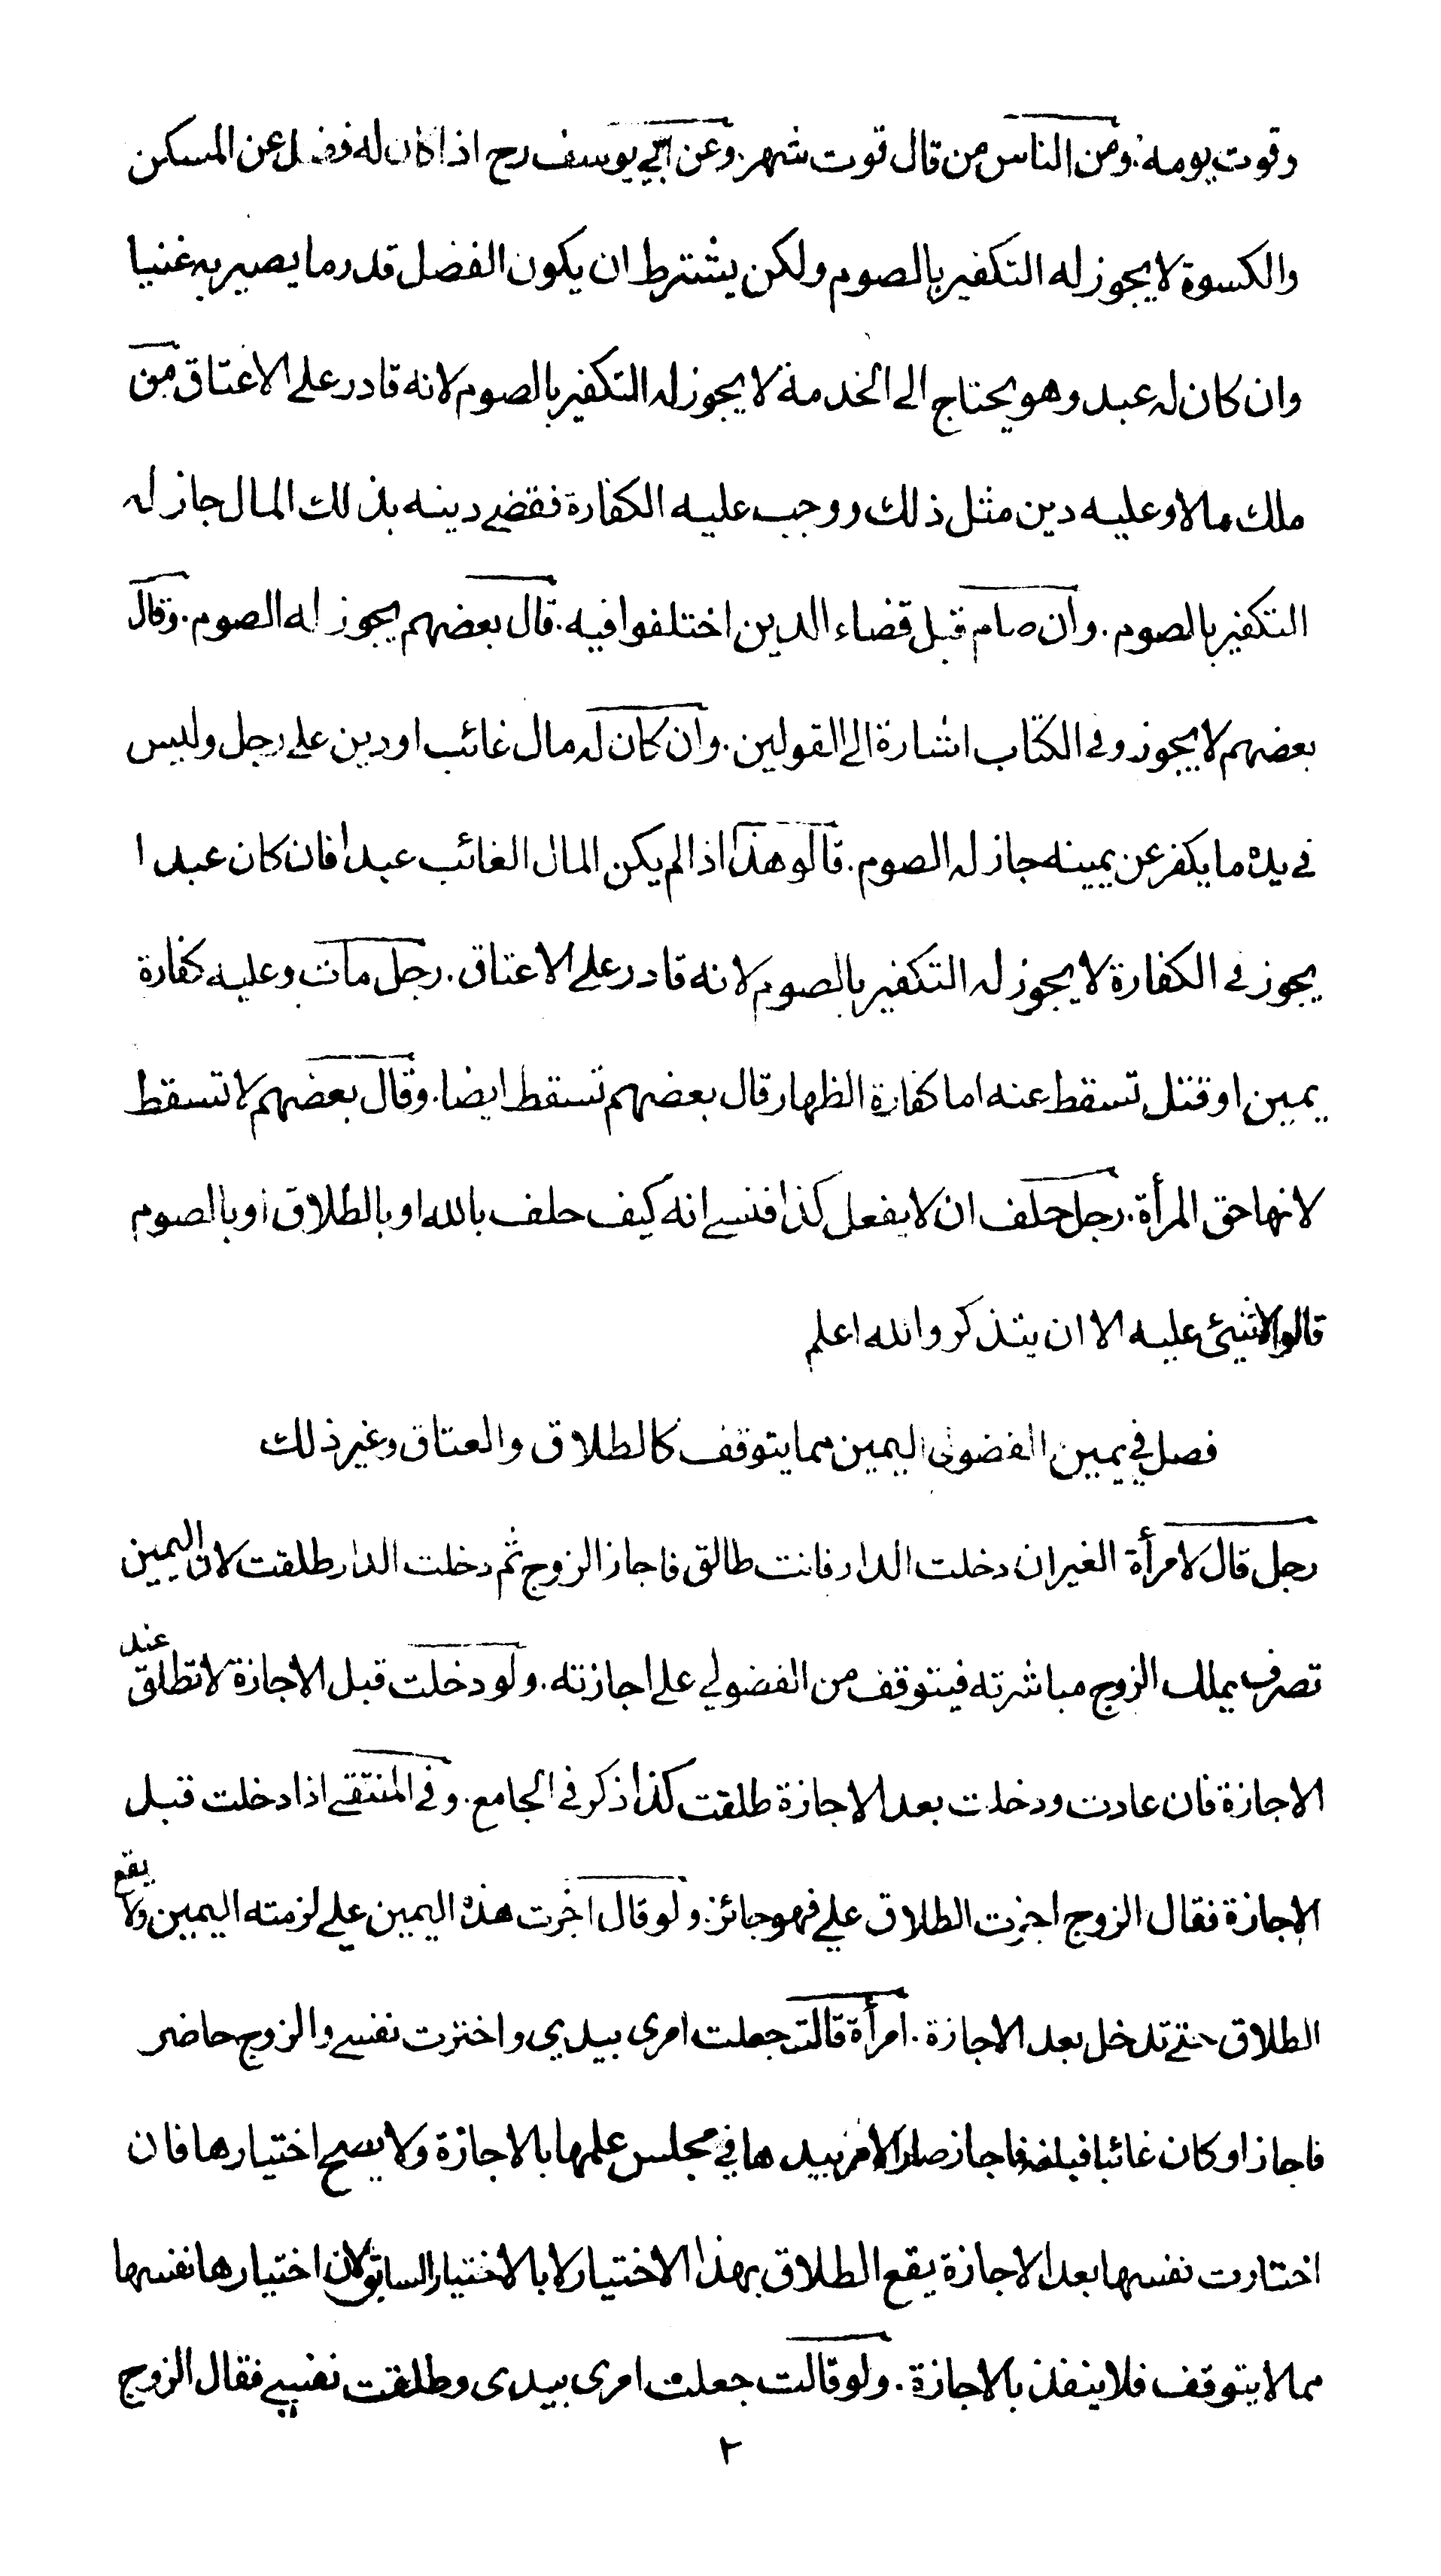 وقوت يومه. ومن الناس من قال قوت شهر. وعن ابي يوسف رح اذا كان له فضل عن المسكن
والكسوة لا يجوز له التكفير بالصوم ولكن يشترط ان يكون الفضل قدر ما يصير به غنيا
وان كان له عبد وهو يحتاج الى الخدمة لا يجوز له التكفير بالصوم لانه قادر على الاعتاق من
ملك مالا وعليه دين مثل ذلك ووجب عليه الكفارة فقضى دينه بذلك المال جاز له
التكفير بالصوم. وان صام قبل قضاء الدين اختلفوا فيه. قال بعضهم يجوز له الصوم. وقال
بعضهم لا يجوز وفي الكتاب اشارة الى القولين. وان كان له مال غائب او دين على رجل وليس
في يده ما يكفر عن يمينه جاز له الصوم. قالو هذا اذا لم يكن المال الغائب عبدا فان كان عبدا
يجوز في الكفارة لا يجوز له التكفير بالصوم لانه قادر على الاعتاق. رجل مات وعليه كفارة
يمين او قتل تسقط عنه اما كفارة الظهار قال بعضهم تسقط ايضا. وقال بعضهم لا تسقط
لانها حق المرأة. رجل حلف ان لا يفعل كذا فنسى انه كيف حلف بالله او بالطلاق او بالصوم
قالوا لا شيئ عليه الا ان يتذكر والله اعلم
فصل في يمين الفضولى اليمين مما يتوقف كالطلاق والعتاق وغير ذلك
رجل قال لامرأة الغير ان دخلت الدار فانت طالق فاجاز الزوج ثم دخلت الدار طلقت لان اليمين
تصرف يملك الزوج مباشرته فيتوقف من الفضولي على اجازته. ولو دخلت قبل الاجازة لا تطلق عند
الاجازة فان عادت ودخلت بعد الاجازة طلقت كذا ذكر في الجامع. وفي المنتقى اذا دخلت قبل
الاجازة فقال الزوج اجزت الطلاق علي فهو جائز. ولو قال اجزت هذه اليمين علي لزمته اليمين ولا يقع
الطلاق حتى تدخل بعد الاجازة. امرأة قالت جعلت امرى بيدي واخترت نفسى والزوج حاضر
فاجاز او كان غائبا فبلغه فاجاز صار الامر بيدها في مجلس علمها بالاجازة ولا يصح اختيارها فان
اختارت نفسها بعد الاجازة يقع الطلاق بهذا الاختيار لا بالاختيار السابق لان اختيارها نفسها
مما لا يتوقف فلا ينفذ بالاجازة. ولو قالت جعلت امرى بيدى وطلقت نفسي فقال الزوج
٢